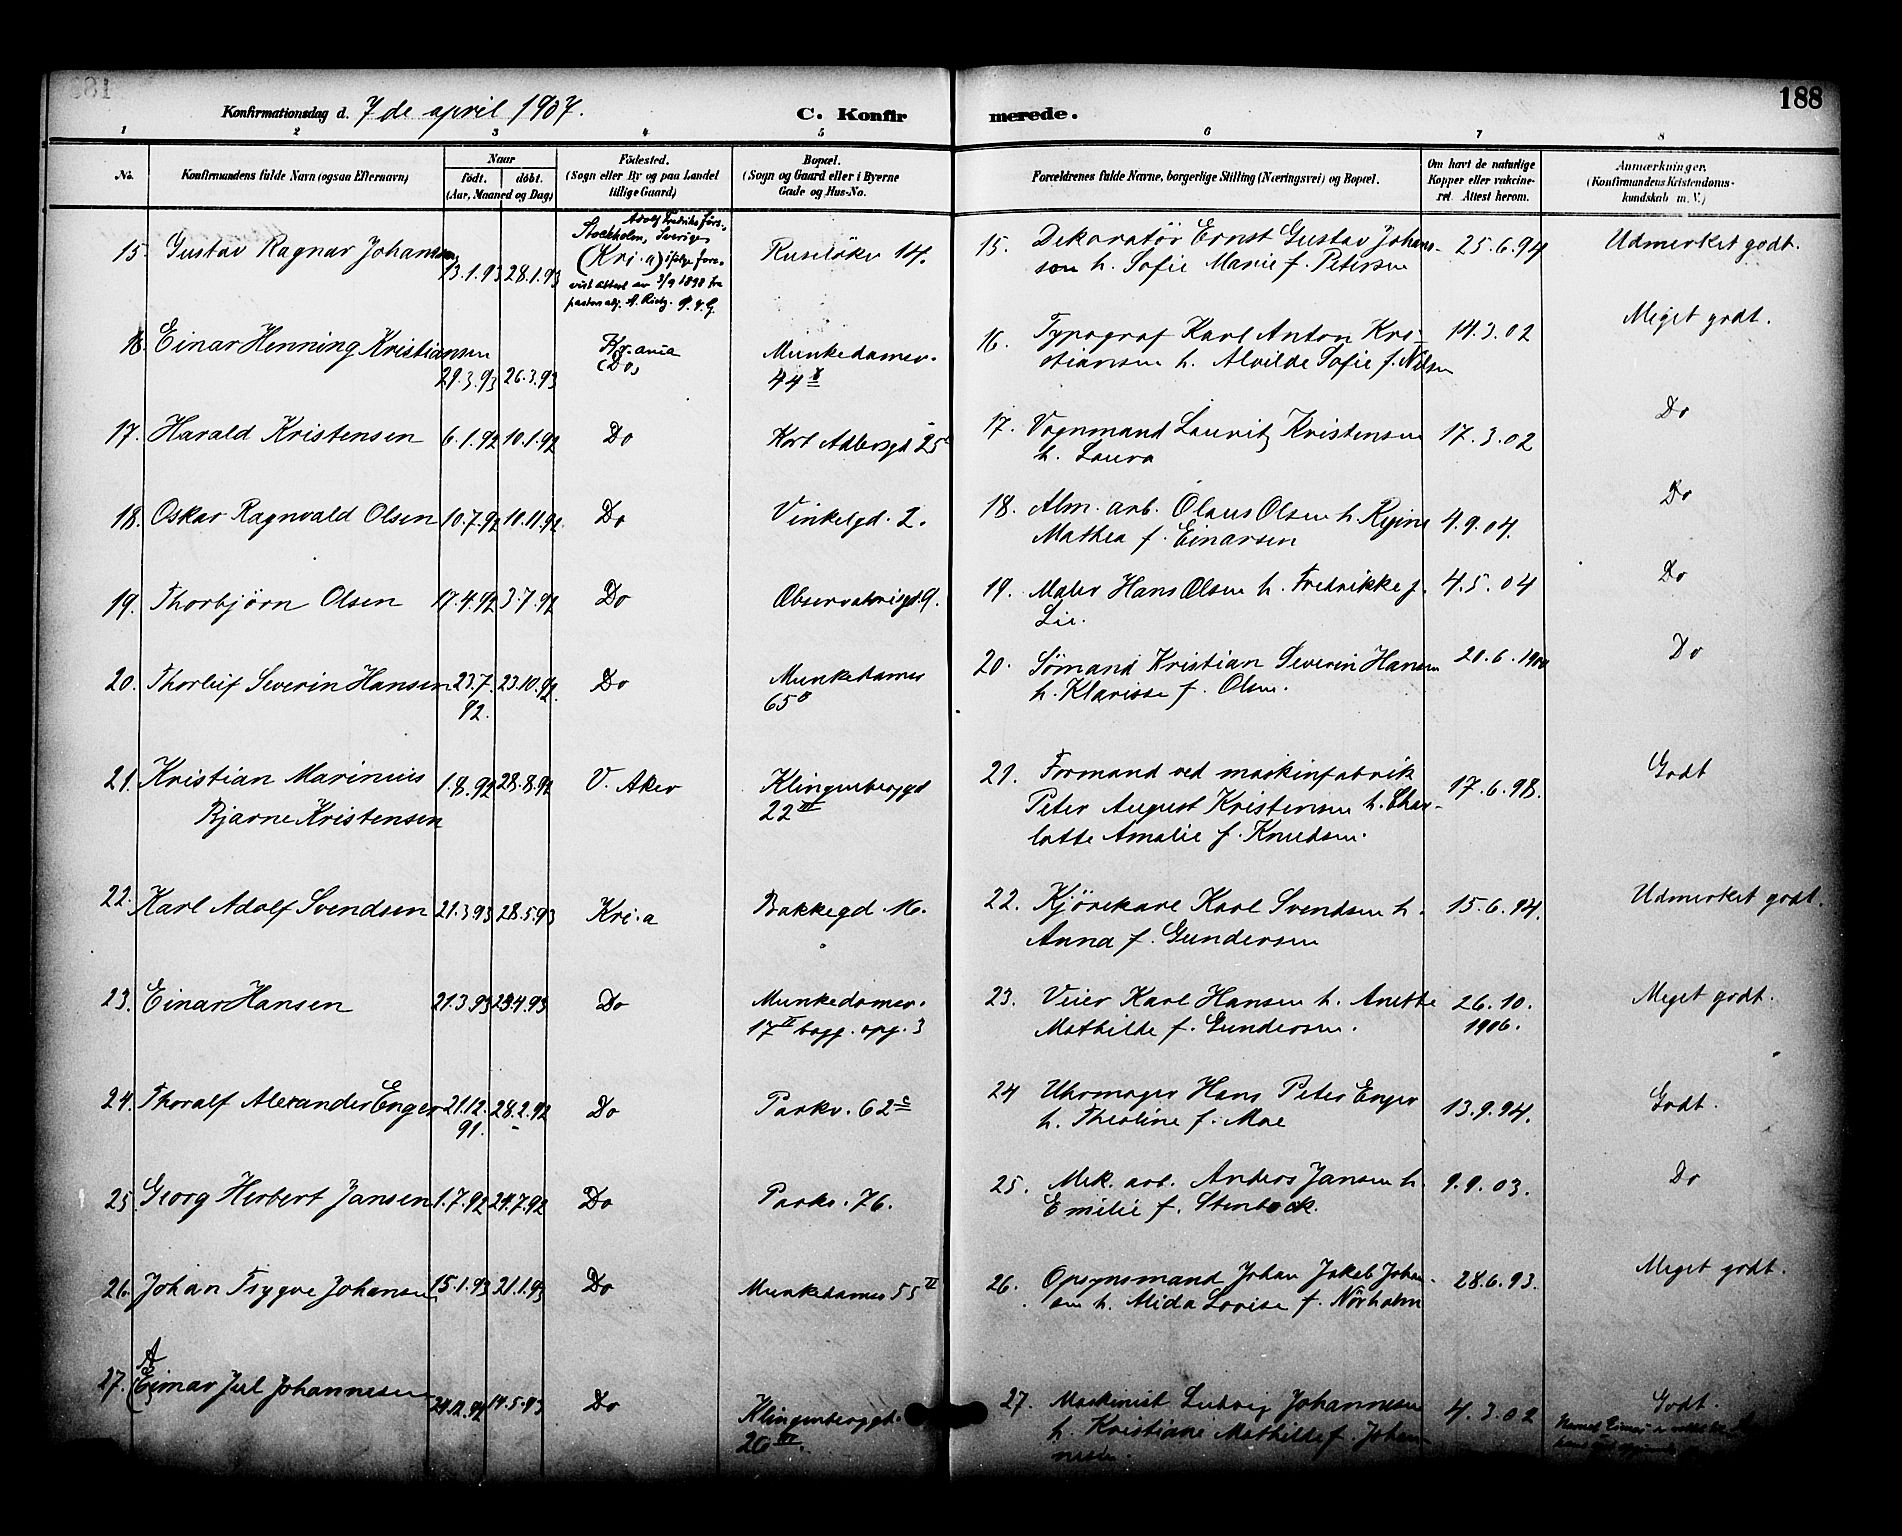 188
Konfirmationsdag d. 7 de april 1907.
C. Konfirmerede.
1 2 3 4 5 6 7 8
No.
Konfirmandens fulde Navn (ogsaa Efternavn)
Naar
födt. döbt.
(Aar, Maaned og Dag)
Födested.
(Sogn eller By og paa Landet
tillige Gaard)
Bopæl.
(Sogn og Gaard eller i Byerne
Gade og Hus-No.
Forældrenes fulde Navne, borgerlige Stilling (Næringsvei) og Bopæl.
Om havt de naturlige
Kopper eller vakcine-
ret. Attest herom.
Anmærkninger.
(Konfirmandens Kristendoms-
kundskab m. V.)
15. Gustav Ragnar Johansen 13.1.93 28.1.93
Adolf Fredriks förs.
Stockholm, Sverige
(Kri.a) ifölge fore-
vist attest av 3/9 1898 fra
Ruselökv 14.
15. Dekoratör Ernst Gustav Johans-
son h. Sofie Marie f. Petersen
25.6.94
Udmerket godt.
16. Einar Henning Kristiansen
29.3.93 26.3.93
Kr.ania
(Do)
Munkedamsv.
44
16. Typograf Karl Anton Kri-
stiansen h. Alvilde Sofie f. Nilsen
14.3.02
Meget godt.
17. Harald Kristensen 6.1.92 10.1.92 Do Kort Adlersgd 25
17. Vognmand Lauritz Kristensen
h. Laura
17.3.02
Do
18. Oskar Ragnvald Olsen 10.7.92 10.11.92. Do Vinkelgd. 2.
18. Alm. arb. Olaus Olsen h. Regine
Mathea f. Einarsen
4.9.04.
Do
19. Thorbjörn Olsen 17.4.92 3.7.92 Do Observatorigd. 9.
19. Maler Hans Olsen h. Fredrikke f.
Lie.
4.5.04
Do
20. Thorleif Severin Hansen 23.7. 23.10.92. Do
92.
Munkedamsv
65 B
20. Sömand Kristian Severin Hansen
h. Klarisse f. Olsen.
20.6.1900
Do
21. Kristian Marinius
Bjarne Kristensen
1.8.92 28.8.92
V. Aker
Klingenberggd
22 III
21. Formand ved maskinfabrik
Peter August Kristensen h. Char-
lotte Amalie f. Knudsen.
17.6.98.
Godt
22. Karl Adolf Svendsen 21.3.93 28.5.93 Kri.a Bakkegd. 16.
22. Kjörekarl Karl Svendsen h.
Anna f. Gundersen
15.6.94.
Udmerket godt.
23. Einar Hansen 21.3.93 23.4.93 Do
Munkedamsv.
17 II bagg. opg. 3
23. Veier Karl Hansen h. Anette
Mathilde f. Gundersen.
26.10.
1906.
Meget godt.
24. Thoralf Alexander Enger 21.12. 28.2.92 Do Parkv. 62 c
91.
24 Uhrmager Hans Peter Enger
h. Theoline f. Moe
13.9.94.
Godt.
25. Georg Herbert Jansen 1.7.92 24.7.92 Do Parkv. 76.
25. Mek. arb. Anders Jansen h.
Emilie f. Stenbock.
9.9.03.
Do
26. Johan Trygve Johansen 15.1.93 21.1.93 Do Munkedamsv 55 II
26. Opsynsmand Johan Jakob Johan-
sen h. Alida Lovise f. Nörholm
28.6.93.
Meget godt.
A
27. (E)imar Jul Johannesen
24.12.92 14.5.93 Do
Klingenberggt.
20 III.
27. Maskinist Ludvig Johannesen
h. Kristiane Mathilde f. Johan-
nesen.
4.3.02
Godt.